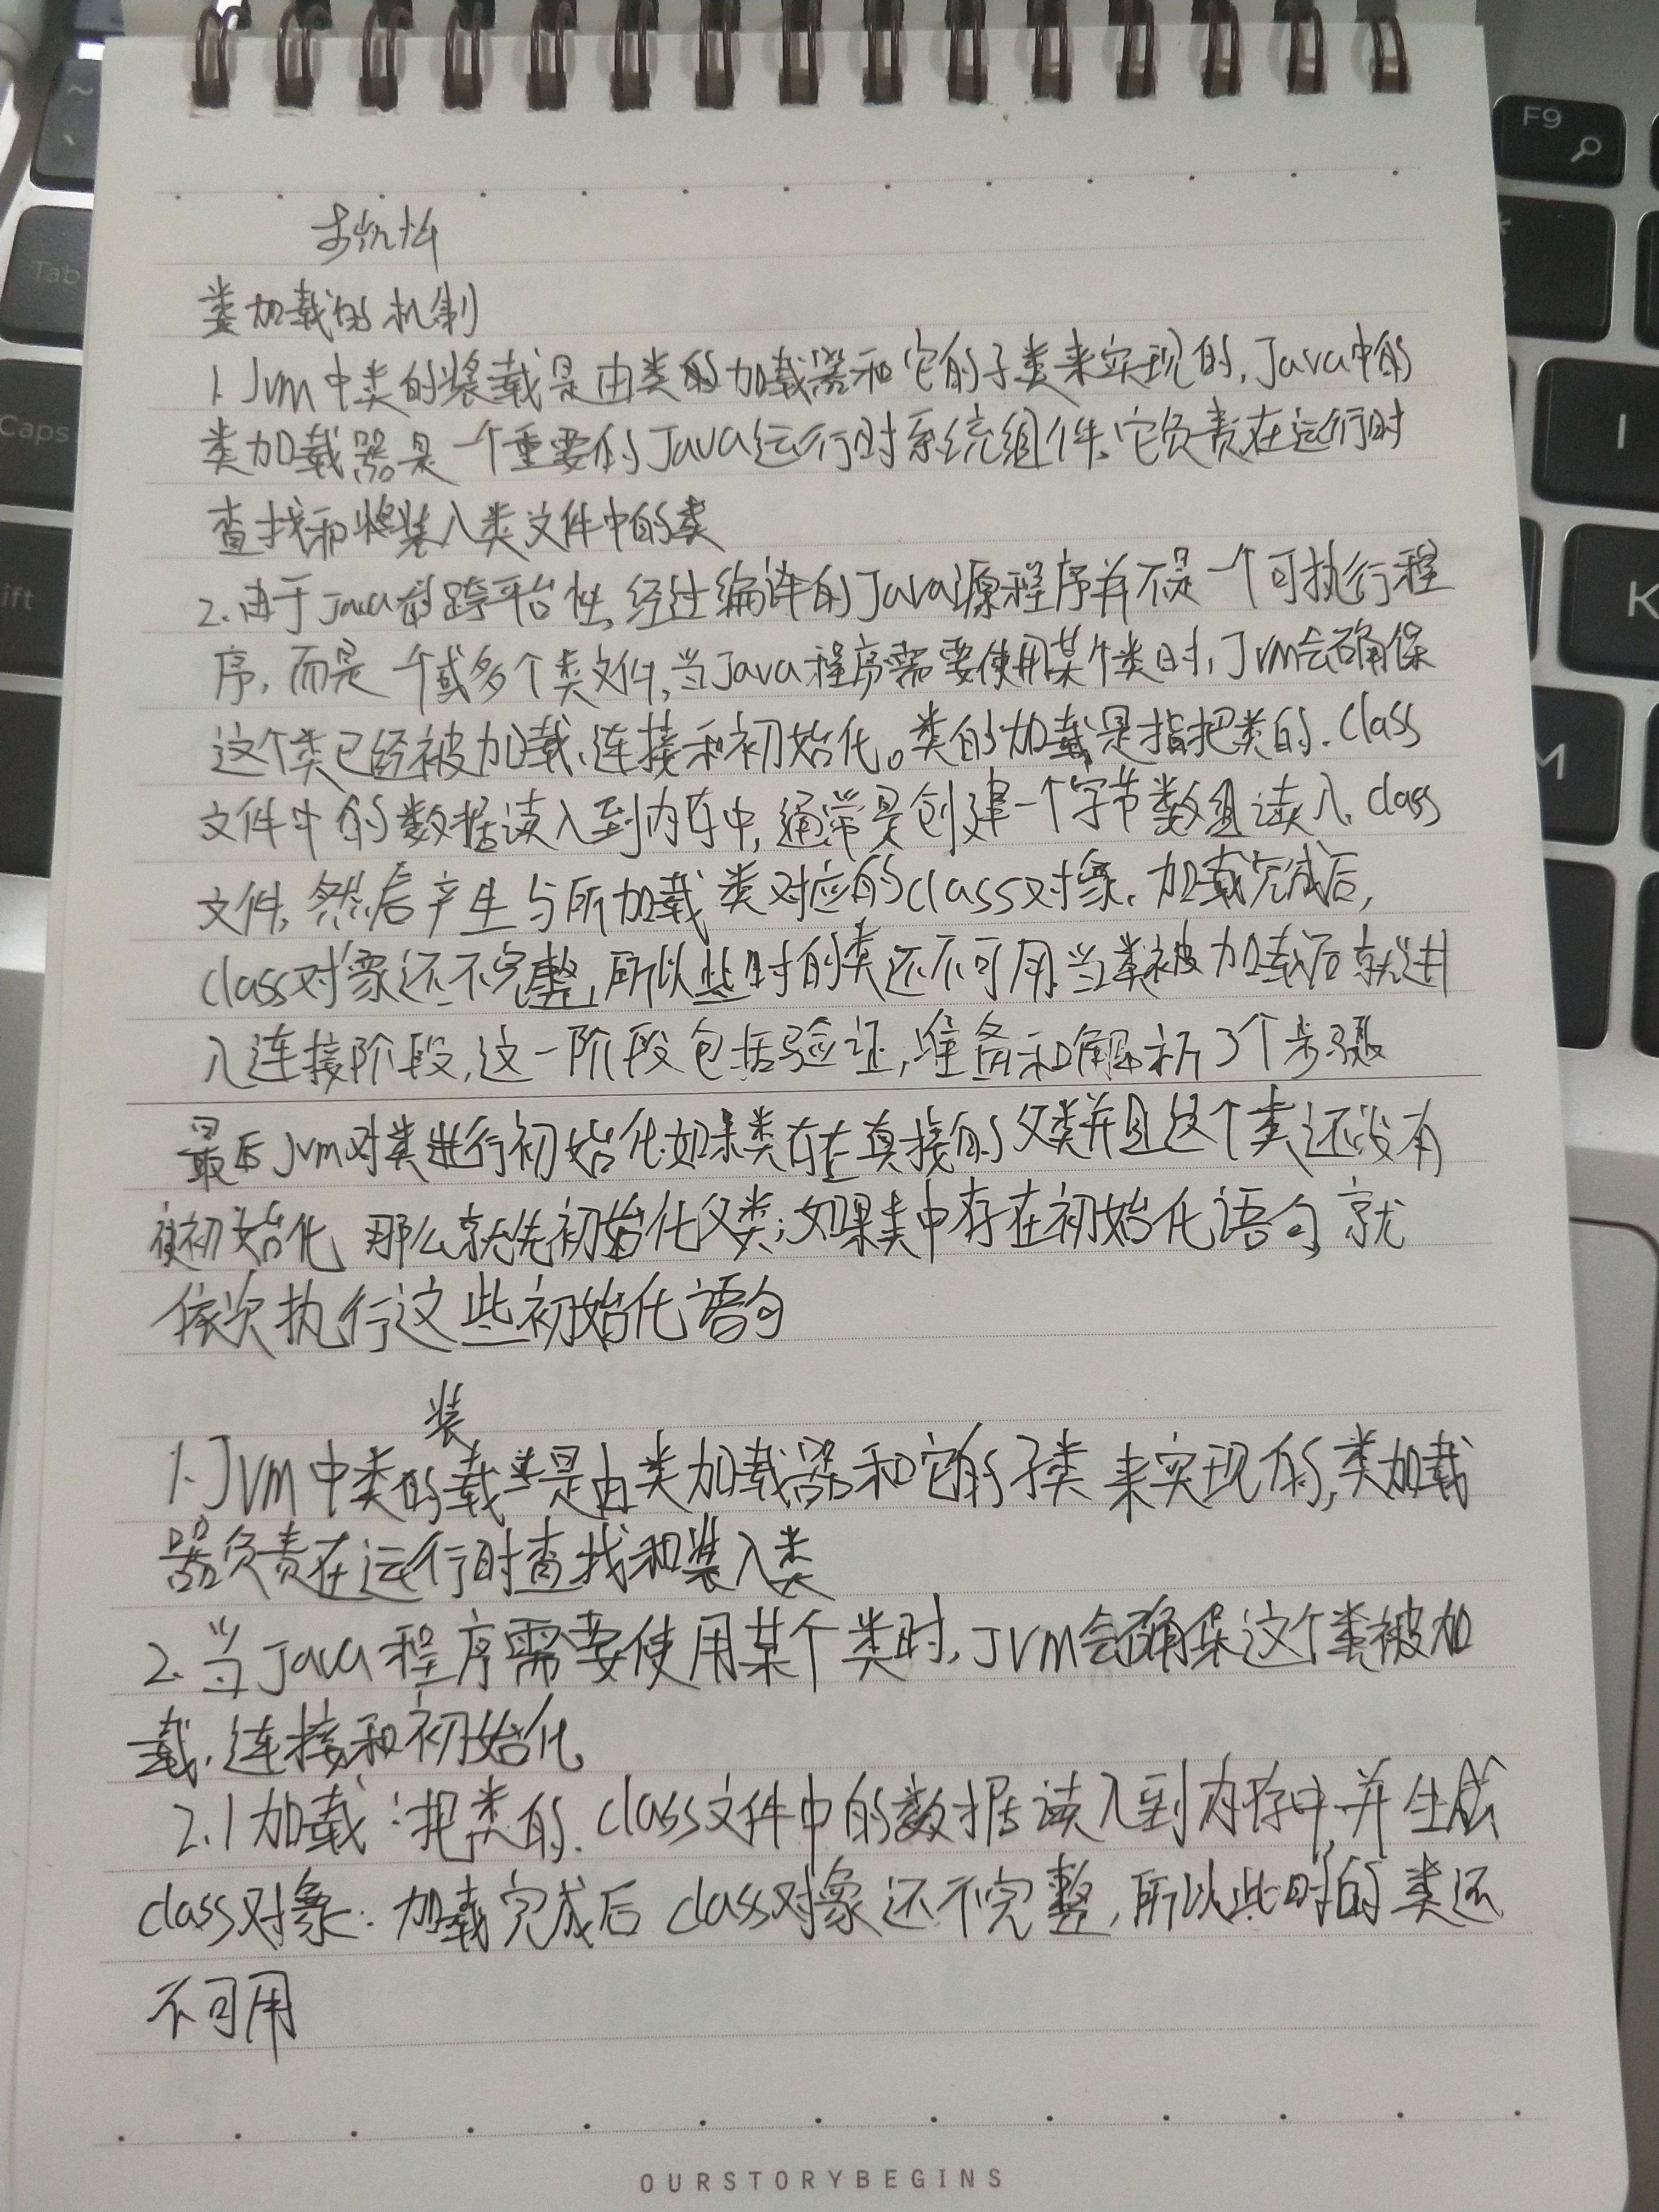 类加载的机制
1. Jvm中类的装载是由类的加载器和它的子类来实现的, Java中的
类加载器是一个重要的Java运行时系统组件、它负责在运行时
查找和将装入类文件中的类
2. 由于Java的跨平台性, 经过编译的Java源程序并不是一个可执行程
序, 而是一个或多个类文件, 当Java程序需要使用某个类时, Jvm会确保
这个类已经被加载、连接和初始化。类的加载是指把类的.class
文件中的数据读入到内存中, 通常是创建一个字节数组读入.class
文件, 然后产生与所加载类对应的class对象. 加载完成后,
class对象还不完整, 所以些时的类还不可用. 当类被加载后就进
入连接阶段, 这一阶段包括验证, 准备和解析3个步骤
最后Jvm对类进行初始化.如果类存在直接的父类并且这个类还没有
被初始化 那么就先初始化父类; 如果类中存在初始化语句, 就
依次执行这些初始化语句
装
1. Jvm中类的载是由类加载器和它的子类来实现的, 类加载
器负责在运行时查找和装入类
2. 当Java程序需要使用某个类时, JVM会确保这个类被加
载、连接和初始化
2.1 加载: 把类的.class文件中的数据读入到内存中, 并生成
class对象. 加载完成后class对象还不完整, 所以此时的类还
不可用
OURSTORYBEGINS
~
`
Tab
Caps
ift
F9
I
K
M